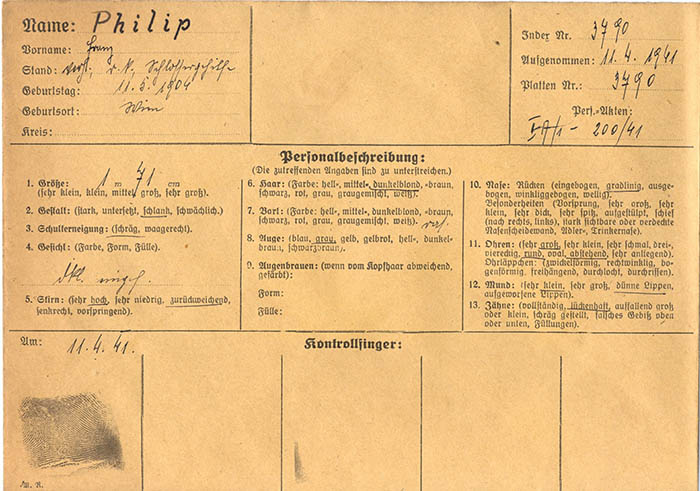 Name: Philip
Vorname: Franz
Stand: verh., r. k., Schlossergehilfe
Geburtstag: 11. 5. 1904
Geburtsort: Wien
Kreis:
Index Nr. 3790
Aufgenommen: 11. 4. 1941
Platten Nr.: 3790
Pers.-Akten:
200/41
Personalbeschreibung:
(Die zutreffenden Angaben sind zu unterstreichen).
1. Größe: 1 m 71 cm
(sehr klein, klein, mittel, groß, sehr groß).
2. Gestalt: (stark, untersetzt, schlank, schwächlich).
3. Schulterneigung: (schräg, waagerecht).
4. Gesicht: (Farbe, Form, Fülle).
5. Stirn: (sehr hoch, sehr niedrig, zurückweichend,
senkrecht, vorspringend).
6. Haar: (Farbe: hell-, mittel-, dunkelblond, -braun,
schwarz, rot, grau, graugemischt, weiß).
7. Bart: (Farbe: hell-, mittel-, dunkelblond, -braun,
schwarz, rot, grau, graugemischt, weiß).
8. Auge: (blau, grau, gelb, gelbrot, hell-, dunkel-
braun, schwarzbraun).
9. Augenbrauen: (wenn vom Kopfhaar abweichend,
gefärbt):
Form:
Fülle:
10. Nase: Rücken (eingebogen, gradlinig, ausge-
bogen, winkliggebogen, wellig).
Besonderheiten (Vorsprung, sehr groß, sehr
klein, sehr dick, sehr spitz, aufgestülpt, schief
(nach rechts, links), stark sichtbare oder verdeckte
Nasenscheidewand, Adler-, Trinkernase).
11. Ohren: (sehr groß, sehr klein, sehr schmal, drei-,
viereckig, rund, oval, abstehend, sehr anliegend).
Ohrläppchen: (zwickelförmig, rechtwinklig, bo-
genförmig, freihängend, durchlocht, durchrissen).
12. Mund: (sehr klein, sehr groß, dünne Lippen,
aufgeworfene Lippen).
13. Zähne: (vollständig, lückenhaft, auffallend groß
oder klein, schräg gestellt, falsches Gebiß oben
oder unten, Füllungen).
Am: 11. 4. 41.
Kontrollfinger: